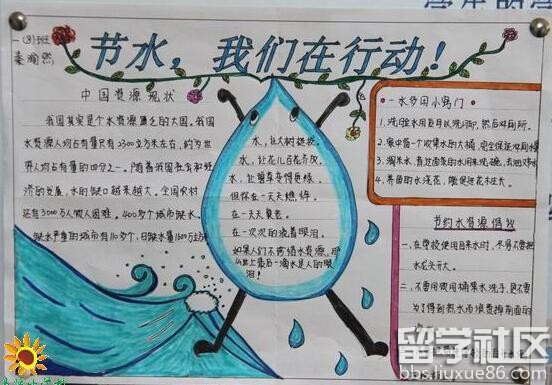 一(8)班
秦瀚然
节水，我们在行动！
中国资源现状
我国其实是个水资源匮乏的大国。我国
水资源人均占有量只有2300立方米左右，约为世
界人均占有量的四分之一。随着我国社会和经
济的发展，水的缺口越来越大。全国农村
还有3000万人饮水困难。400多个城市缺水。
缺水严重的城市有110多个，日缺水量1600万立方米
水，让大树挺拔。
水，让花儿百花齐放。
水，让翠草变得
但你在一天天
在一天天衰老。
在一次次的流着眼泪。
如果人们不珍惜水资源，那
么世上最后一滴水是人的眼
泪！
一水多用小窍门
1.洗脸水用后可以洗脚，然后冲厕所。
2.家中预一个收集水的大桶，完全保证冲厕所
3.淘米水、煮过面条的水用来洗碗，去油
4.养鱼的水浇花，能促进花木生长。
节约水资源倡议
一、在学校使用自来水时，不要把
水龙头开大。
二、不要用饮用桶集水洗手，更不要
为了得到热水而浪费掉前面的
留学社区
bbs.liuxue86.com